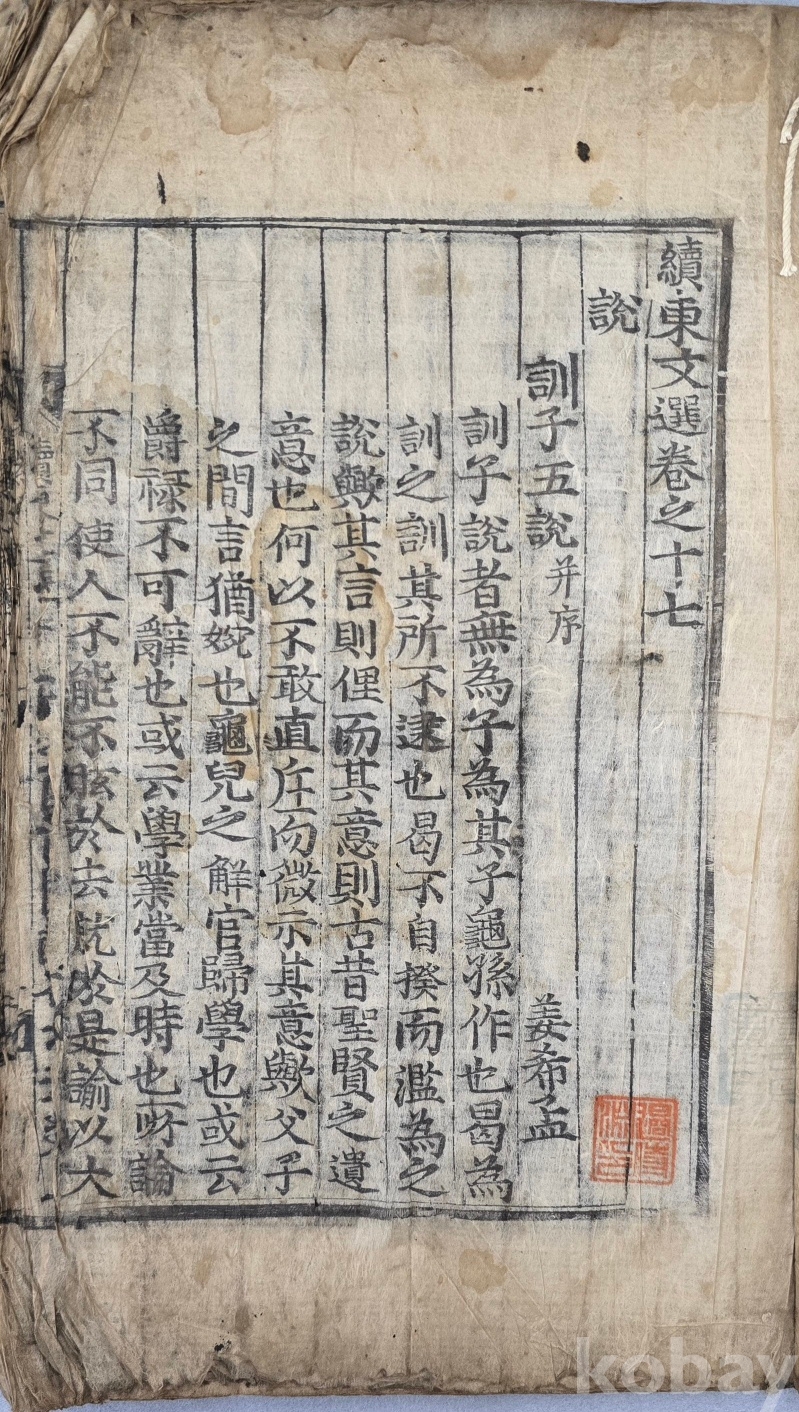 續東文選卷之十七
說
訓子五說 并序 姜希孟
訓子說者無為子為其子龜孫作也曷為
訓之訓其所不逮也曷不自揆而濫為之
說歟其言則俚而其意則古昔聖賢之遺
意也何以不敢直斥而微示其意歟父子
之間言猶婉也龜兒之解官歸學也或云
爵祿不可辭也或云學業當及時也所論
不同使人不能不眩於去就於是諭以大
kobay